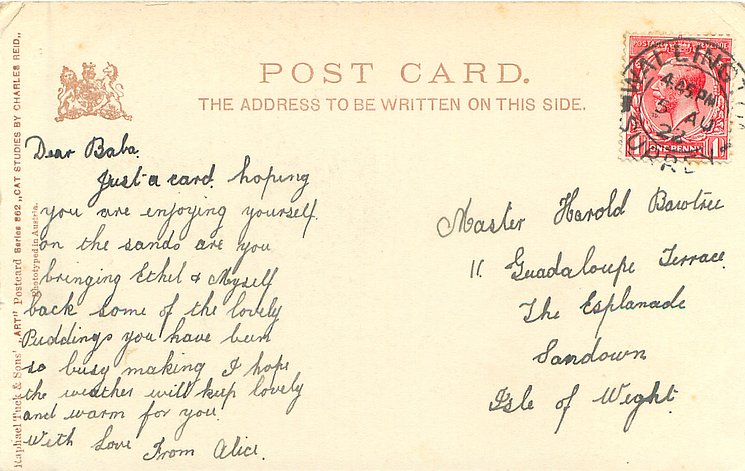 POST CARD.
THE ADDRESS TO BE WRITTEN ON THIS SIDE.
Raphael Tuck & Sons' „ART" Postcard Series 862 „CAT STUDIES BY CHARLES REID„
Phototyped in Austria.
WALLINGTON
4.45 PM
5 AU
22
SURREY
ONE PENNY
Dear Baba.
Just a card. hoping
you are enjoying yourself.
on the sands are you
bringing Ethel & Myself
back some of the lovely
Puddings you have been
so busy making I hope
the weather will keep lovely
and warm for you.
With Love From Alice.
Master Harold Bawtree
11 Guadaloupe Terrace.
The Esplanade
Sandown
Isle of Wight.